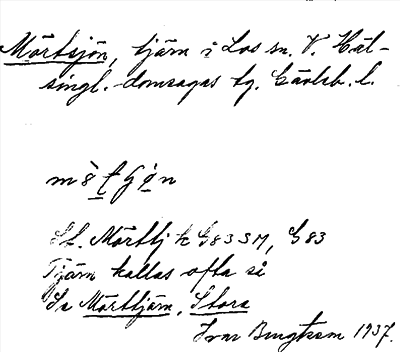 Mörttjön, tjärn i Los sn. V. Häl-
singl. domsagas tg. Gävleb. l.
St. Mörttj k G83SM, G83
Tjärn kallas ofta så
Se Mörttjärn, Stora
Ivar Bengtsson 1937.